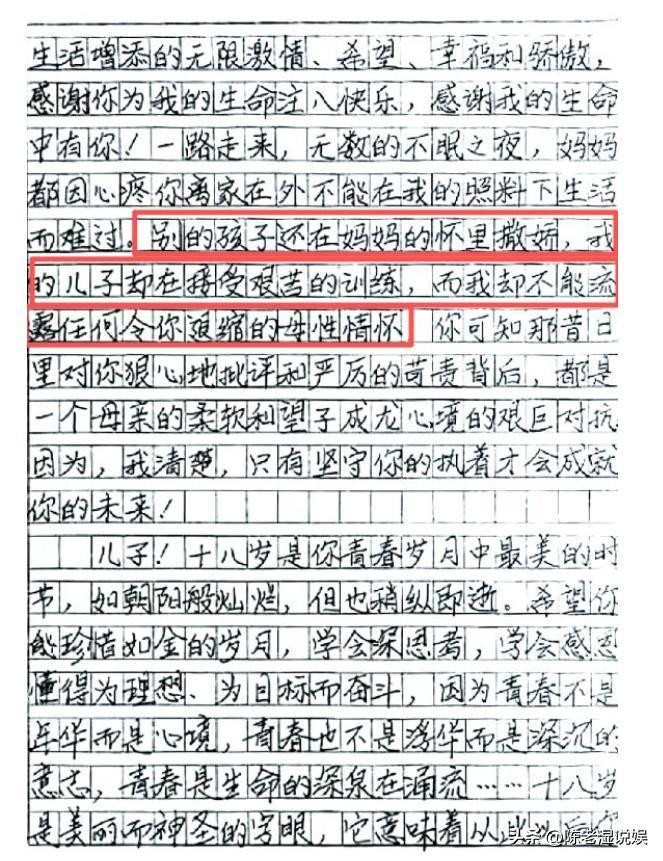 生活增添的无限激情、希望、幸福和骄傲，
感谢你为我的生命注入快乐，感谢我的生命
中有你！一路走来，无数的不眠之夜，妈妈
都因心疼你离家在外不能在我的照料下生活
而难过。别的孩子还在妈妈的怀里撒娇，我
的儿子却在接受艰苦的训练，而我却不能流
露任何令你退缩的母性情怀 你可知那昔日
里对你狠心地批评和严厉的苛责背后，都是
一个母亲的柔软和望子成龙心境的艰巨对抗
因为，我清楚，只有坚守你的执着才会成就
你的未来！
儿子！十八岁是你青春岁月中最美的时
节，如朝阳般灿烂，但也稍纵即逝。希望你
能珍惜如金的岁月，学会深思考，学会感恩
懂得为理想、为目标而奋斗，因为青春不是
年华而是心境，青春也不是浮华而是深沉的
意志，青春是生命的深泉在涌流……十八岁
是美丽而神圣的字眼，它意味着从此以后你
头条 @陈老湿说娱